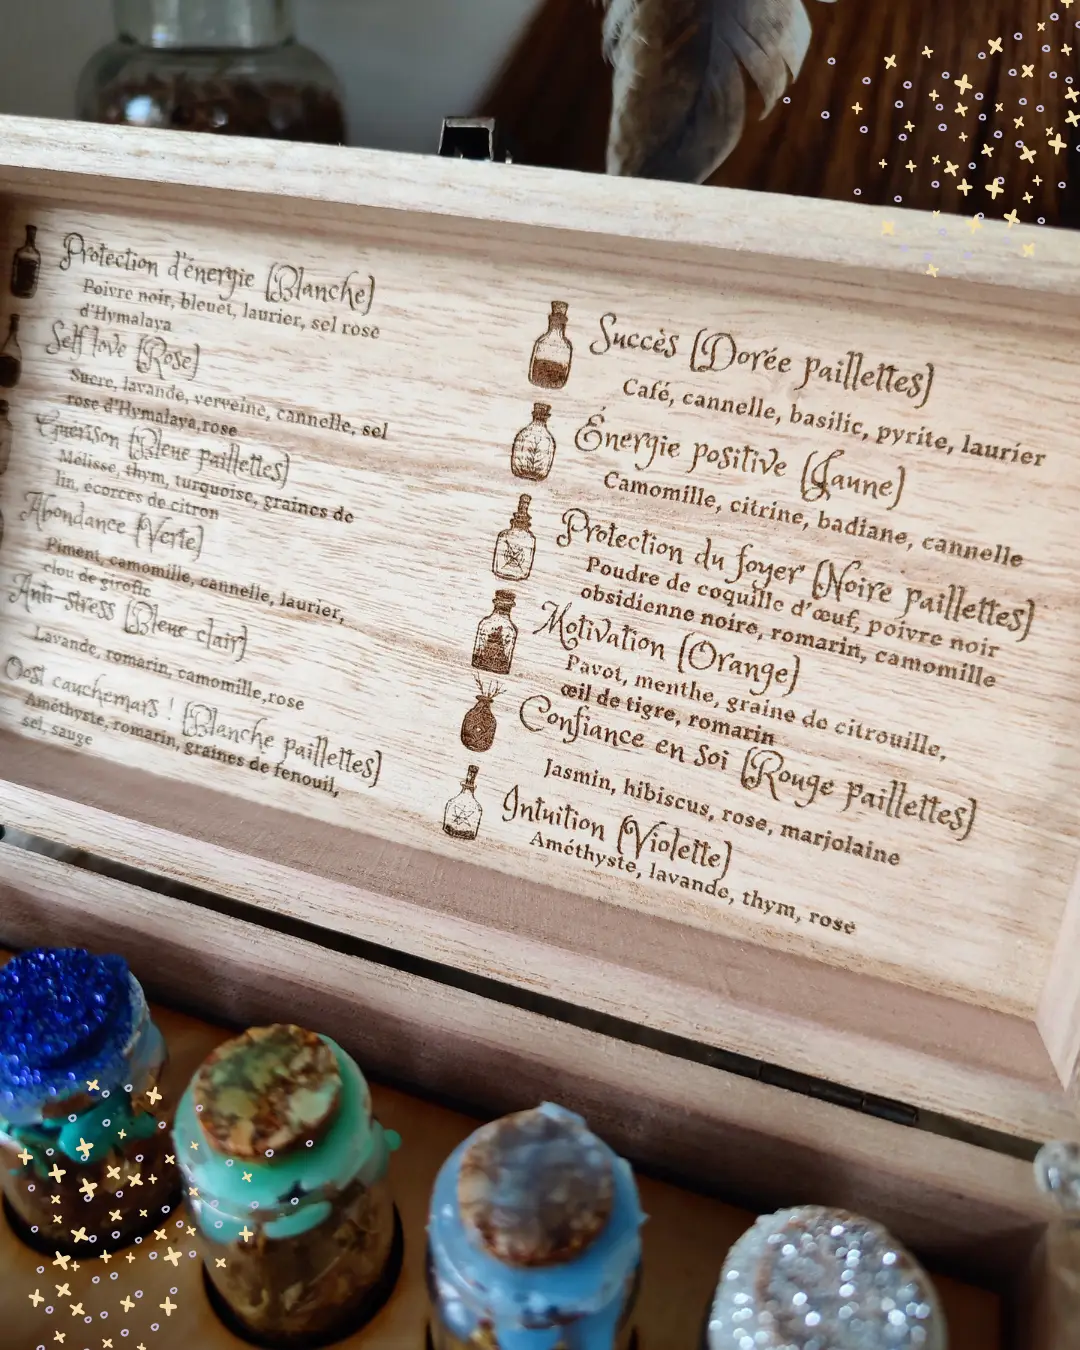 Protection d'énergie (Blanche)
Poivre noir, bleuet, laurier, sel rose
d'Hymalaya
Self love (Rose)
Sucre, lavande, verveine, cannelle, sel
rose d'Hymalaya,rose
Guérison (Bleue paillettes)
Mélisse, thym, turquoise, graines de
lin, écorces de citron
Abondance (Verte)
Piment, camomille, cannelle, laurier,
clou de girofle
Anti-stress (Bleue clair)
Lavande, romarin, camomille,rose
Oost cauchemars ! (Blanche paillettes)
Améthyste, romarin, graines de fenouil,
sel, sauge
Succès (Dorée paillettes)
Café, cannelle, basilic, pyrite, laurier
Énergie positive (Jaune)
Camomille, citrine, badiane, cannelle
Protection du foyer (Noire paillettes)
Poudre de coquille d'œuf, poivre noir
obsidienne noire, romarin, camomille
Motivation (Orange)
Pavot, menthe, graine de citrouille,
œil de tigre, romarin
Confiance en soi (Rouge paillettes)
Jasmin, hibiscus, rose, marjolaine
Intuition (Violette)
Améthyste, lavande, thym, rose